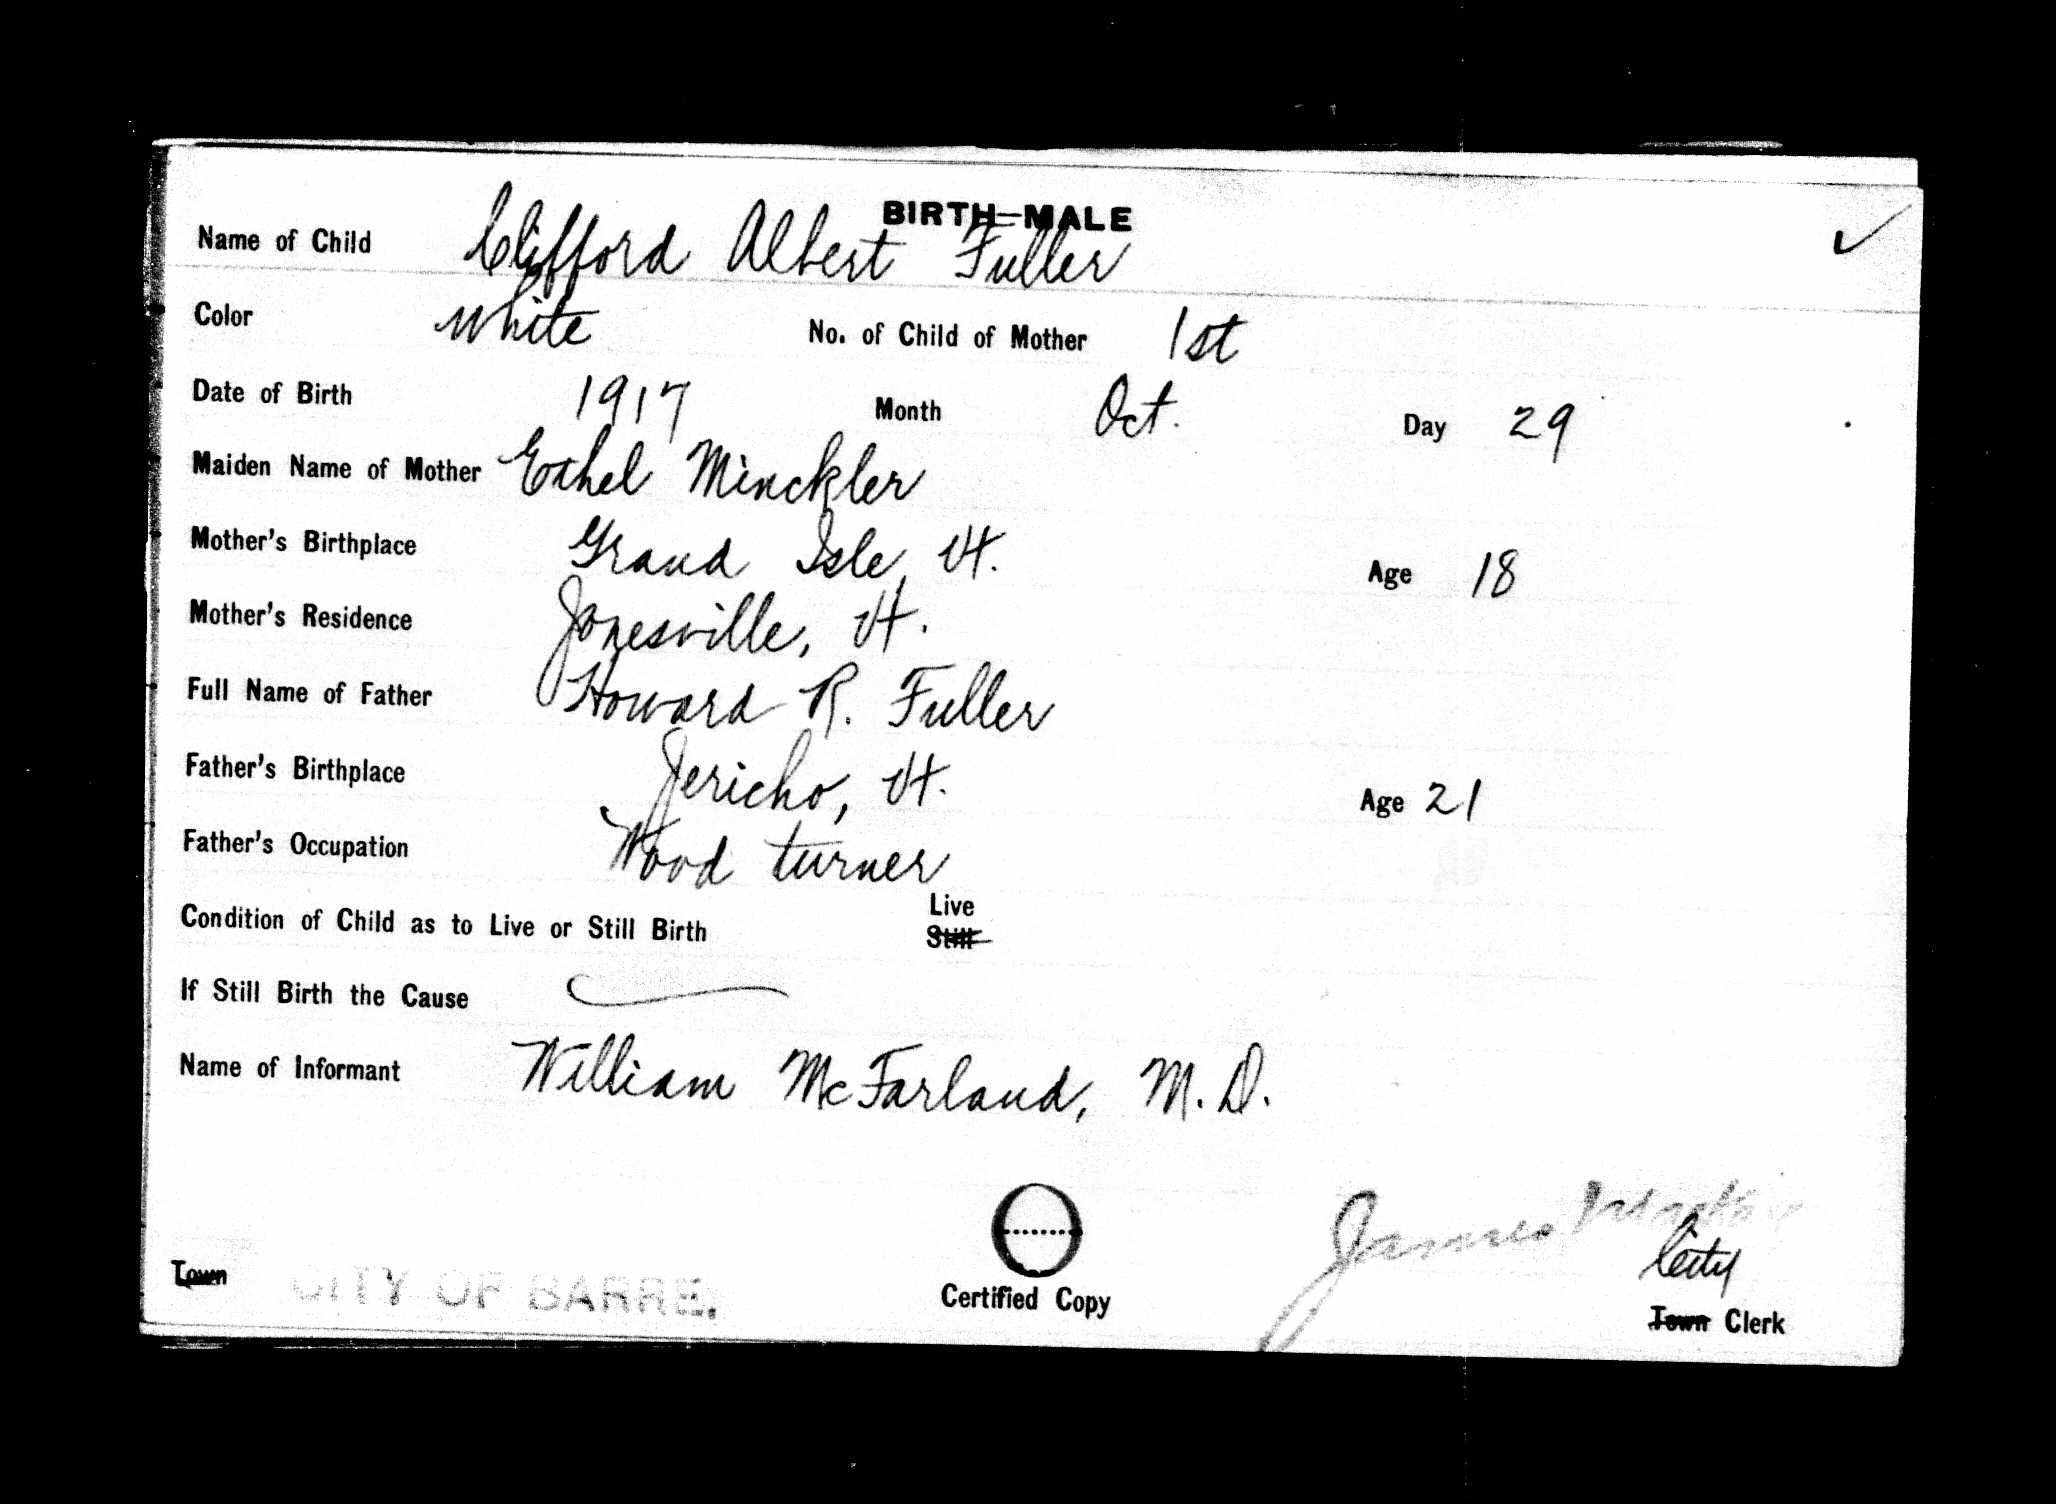 BIRTH—MALE
Name of Child Clifford Albert Fuller
Color White No. of Child of Mother 1st
Date of Birth 1917 Month Oct. Day 29
Maiden Name of Mother Ethel Minckler
Mother's Birthplace Grand Isle, Vt. Age 18
Mother's Residence Jonesville, Vt.
Full Name of Father Howard R. Fuller
Father's Birthplace Jericho, Vt. Age 21
Father's Occupation Wood turner
Live
Condition of Child as to Live or Still Birth Still
If Still Birth the Cause
Name of Informant William McFarland, M.D.
James
City
Town CITY OF BARRE. Certified Copy Town Clerk